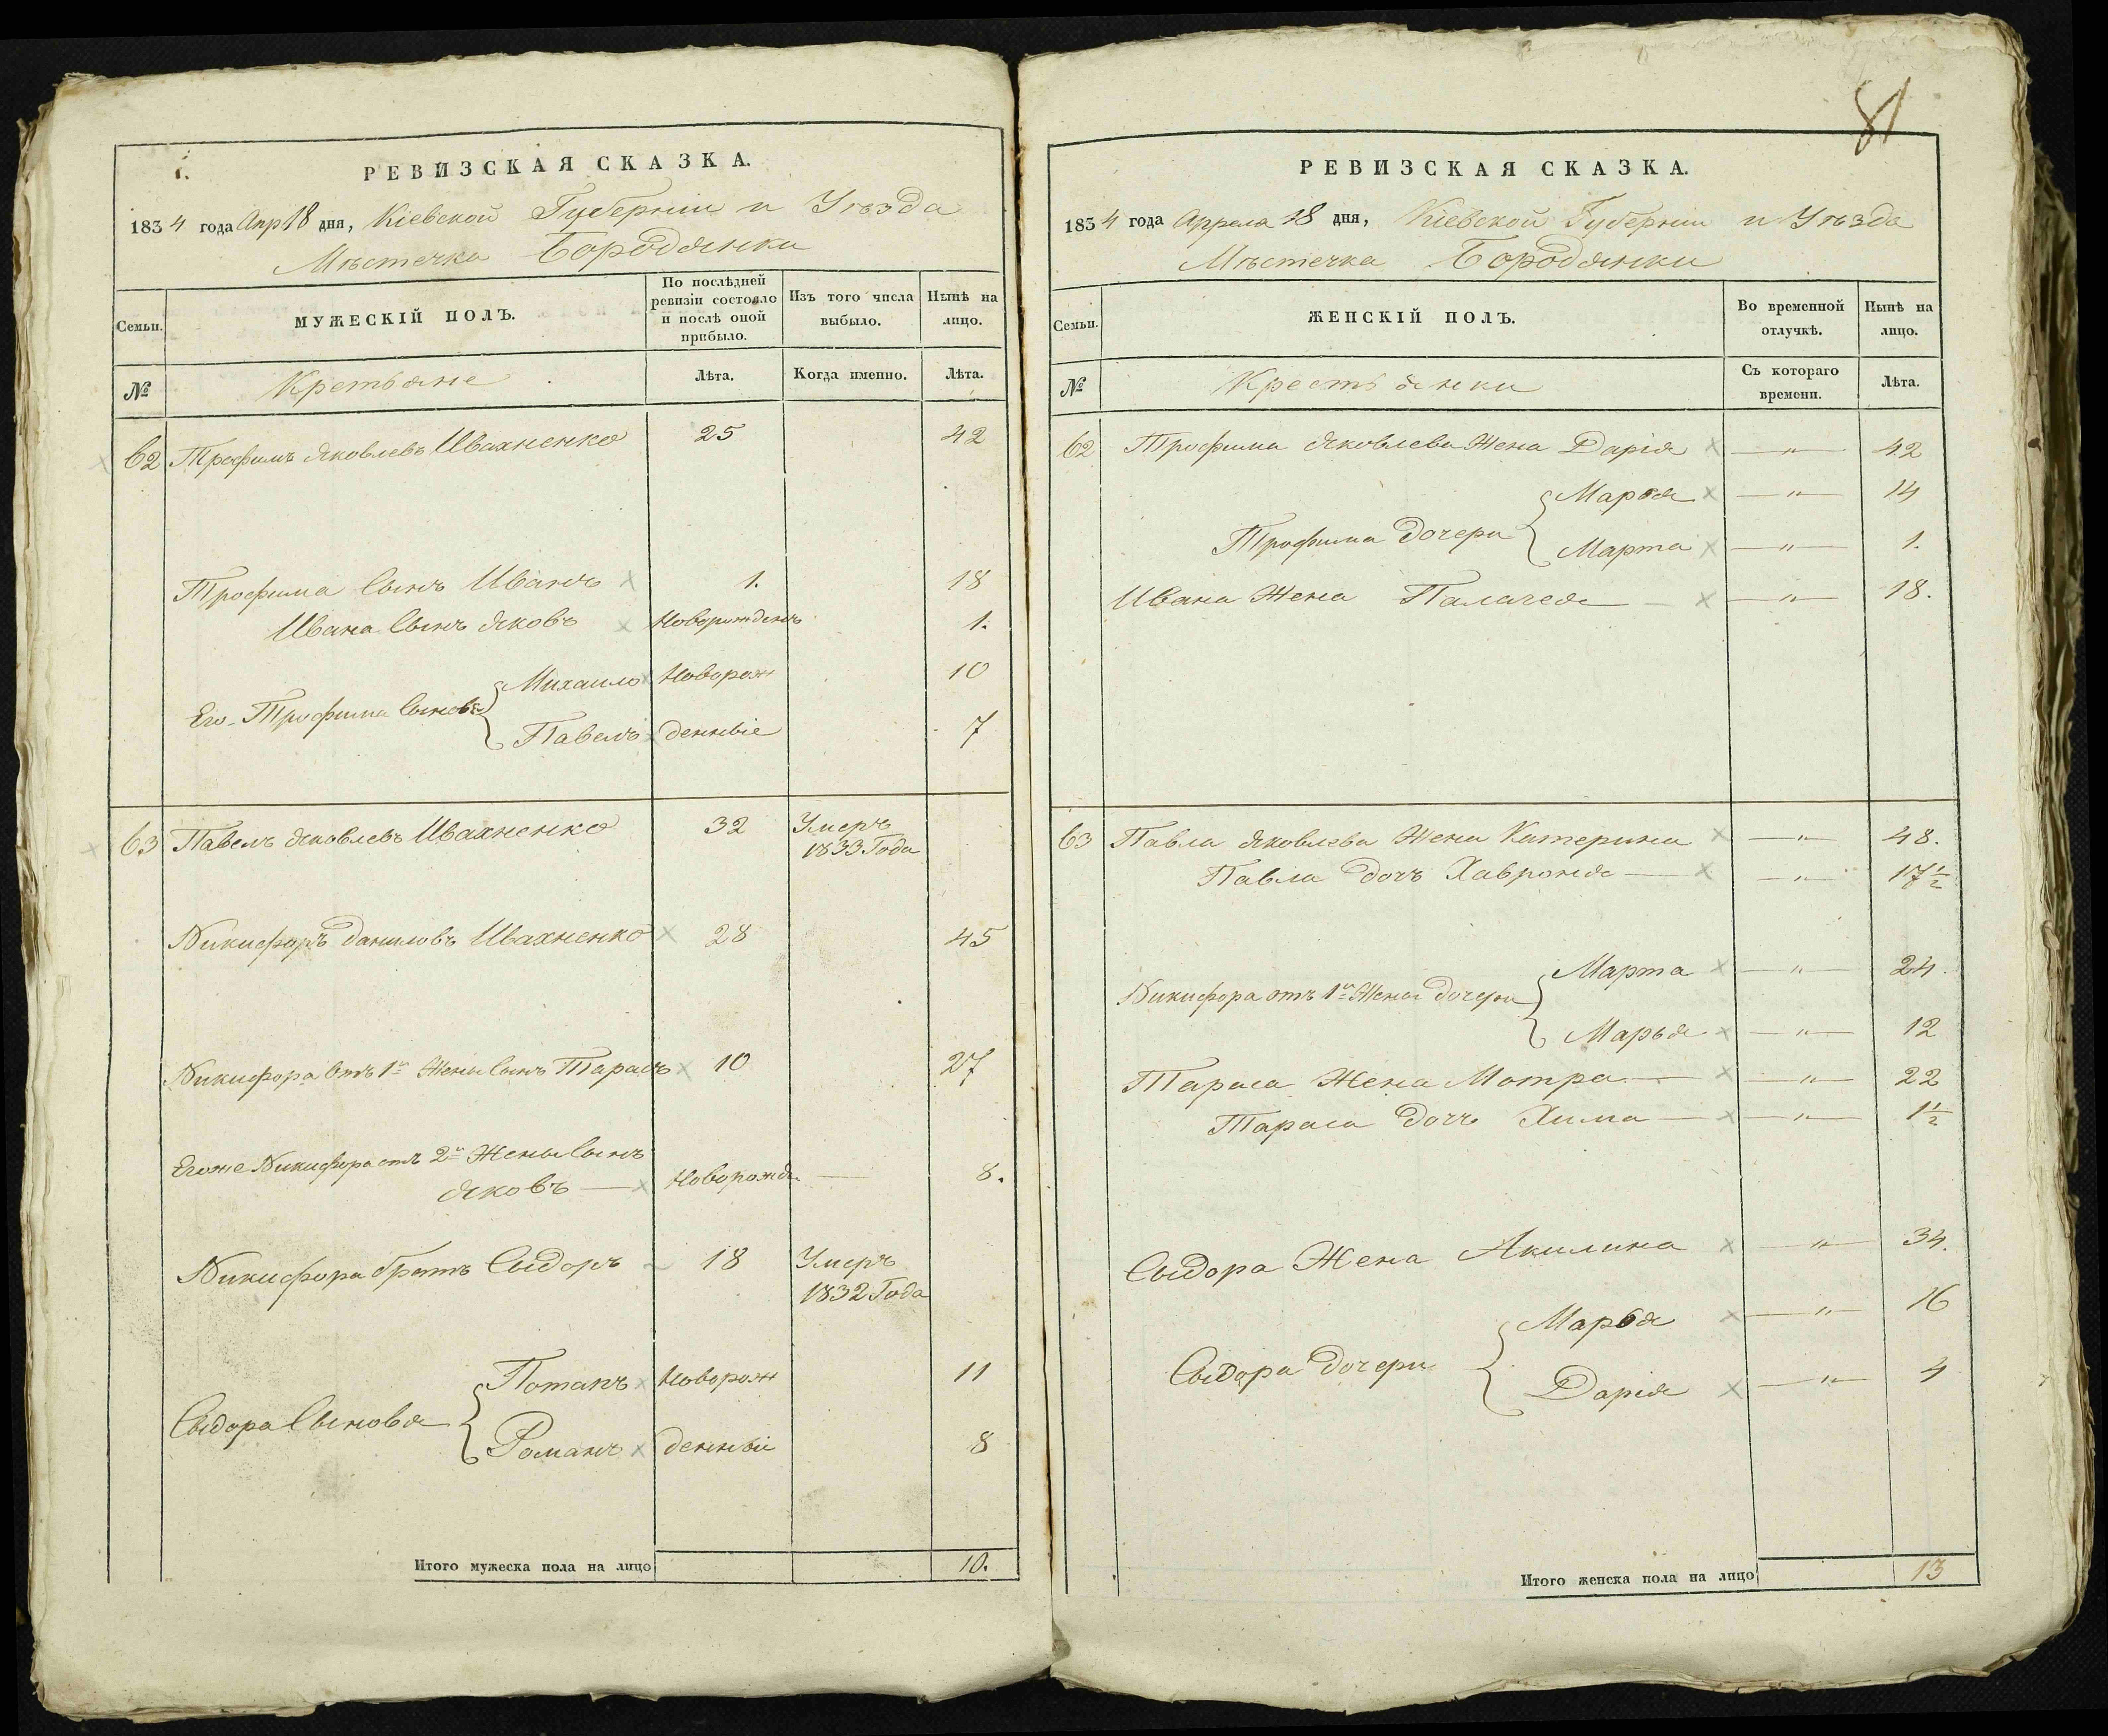 РЕВИЗСКАЯ СКАЗКА.
1834 года Апр 18 дня, Кіевской Губерніи и Уѣзда
Мѣстечка Бородянки
Семьи. МУЖЕСКІЙ ПОЛЪ. По послѣдней ревизіи состояло и послѣ оной прибыло. Изъ того числа выбыло. Нынѣ на лицо.
№ Кретьяне Лѣта. Когда именно. Лѣта.
62 Трофимъ Яковлевъ Ивахненко 25 42
Трофима Сынъ Иванъ 1. 18
Ивана Сынъ Яковъ Новорожденъ 1.
Михаило Новорож 10
Его Трофима Сыновья
Павелъ денныіе 7
63 Павелъ Яковлевъ Ивахненко 32 Умеръ 1833 Года
Никифоръ Даниловъ Ивахненко 28 45
Никифора Отъ 1й Жены Сынъ Тарасъ 10 27
Егоже Никифора отъ 2й Жены Сынъ
Яковъ — Новорожд. — 8.
Никифора братъ Сыдоръ 18 Умеръ 1832 Года
Потапъ Новорож 11
Сыдора Сыновья
Романъ денный 8
Итого мужеска пола на лицо 10.
81
РЕВИЗСКАЯ СКАЗКА.
1834 года Аррела 18 дня, Кіевской Губерніи и Уѣзда
Мѣстечка Бородянки
Семьи. ЖЕНСКІЙ ПОЛЪ. Во временной отлучкѣ. Нынѣ на лицо.
№ Крестьянки Съ котораго времени. Лѣта.
62 Трофима Яковлева Жена Дарія — " — 42
Марья — " — 14
Трофима Дочери
Марта — " — 1.
Ивана Жена Палагея — — " — 18.
63 Павла Яковлева Жена Катерина — " — 48.
Павла дочъ Хавронья — — " — 17 1/2
Марта — " — 24.
Никифора отъ 1й Жены Дочери
Марья — " — 12
Тараса Жена Мотра — — " — 22
Тараса Дочъ Хима — — " — 1 1/2
Сыдора Жена Акилина — " — 34.
Марья — " — 16
Сыдора Дочери
Дарія — " — 4
Итого женска пола на лицо 13